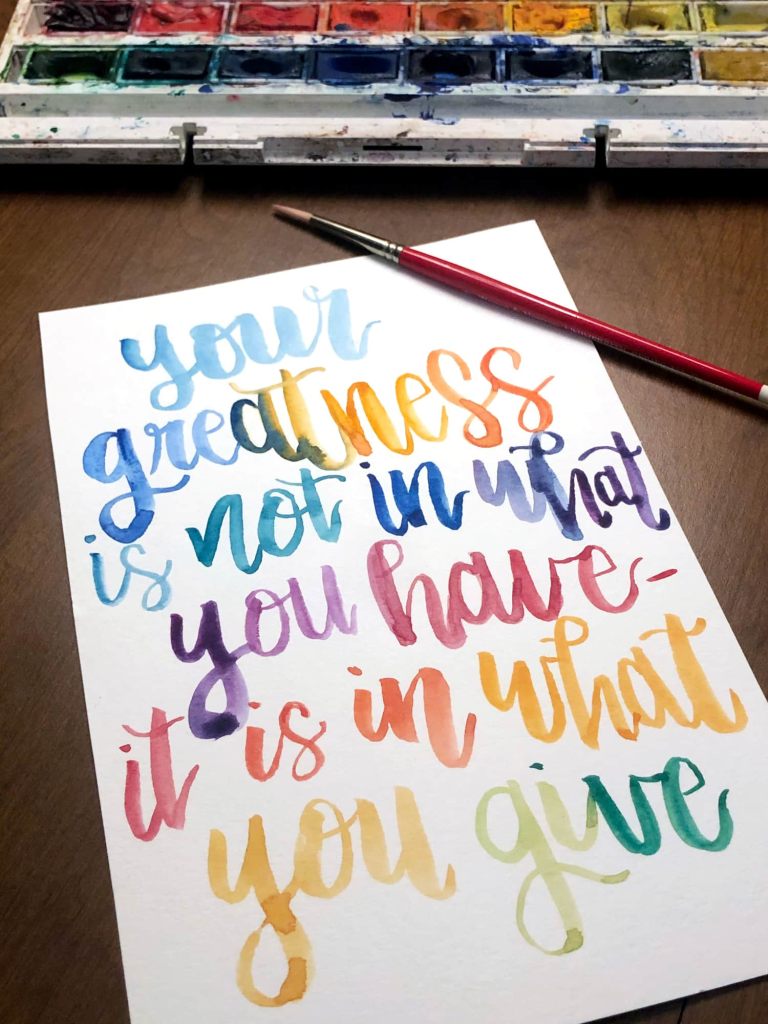 your
greatness
is not in what
you have-
it is in what
you give